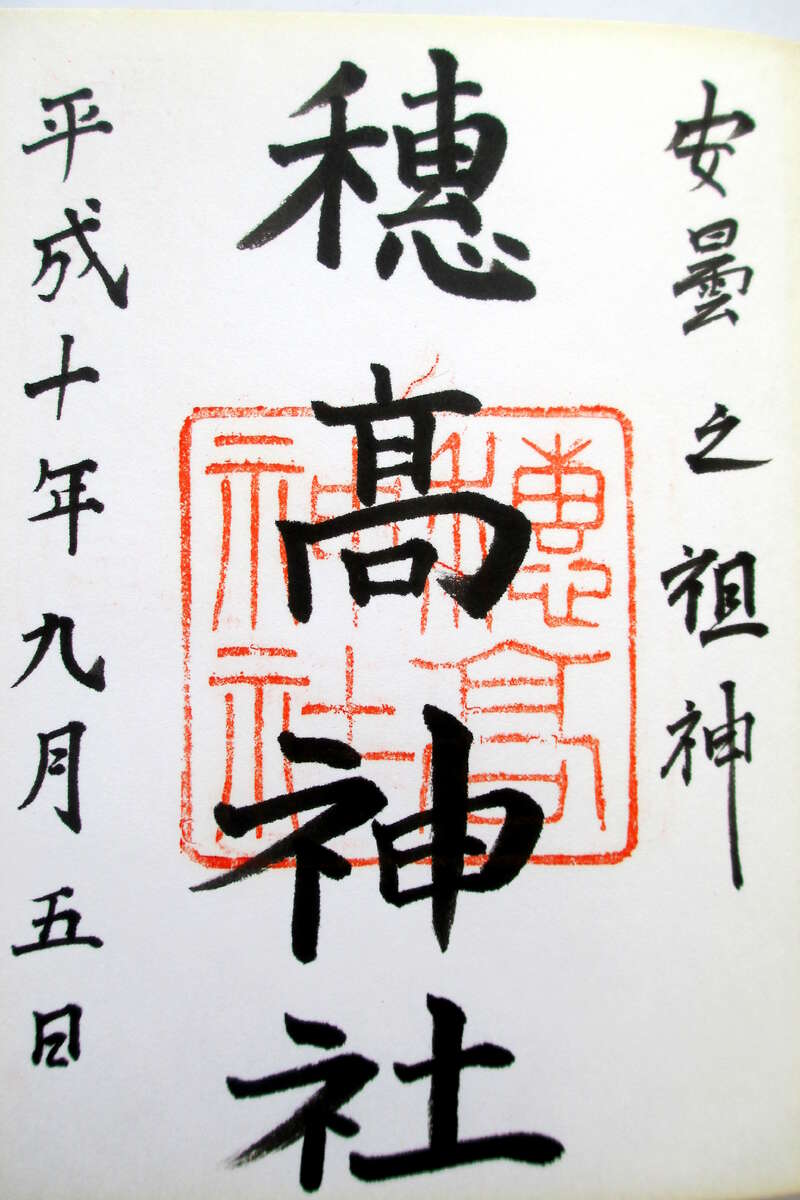 安曇之祖神
穗髙神社
穗高神社
平成十年九月五日